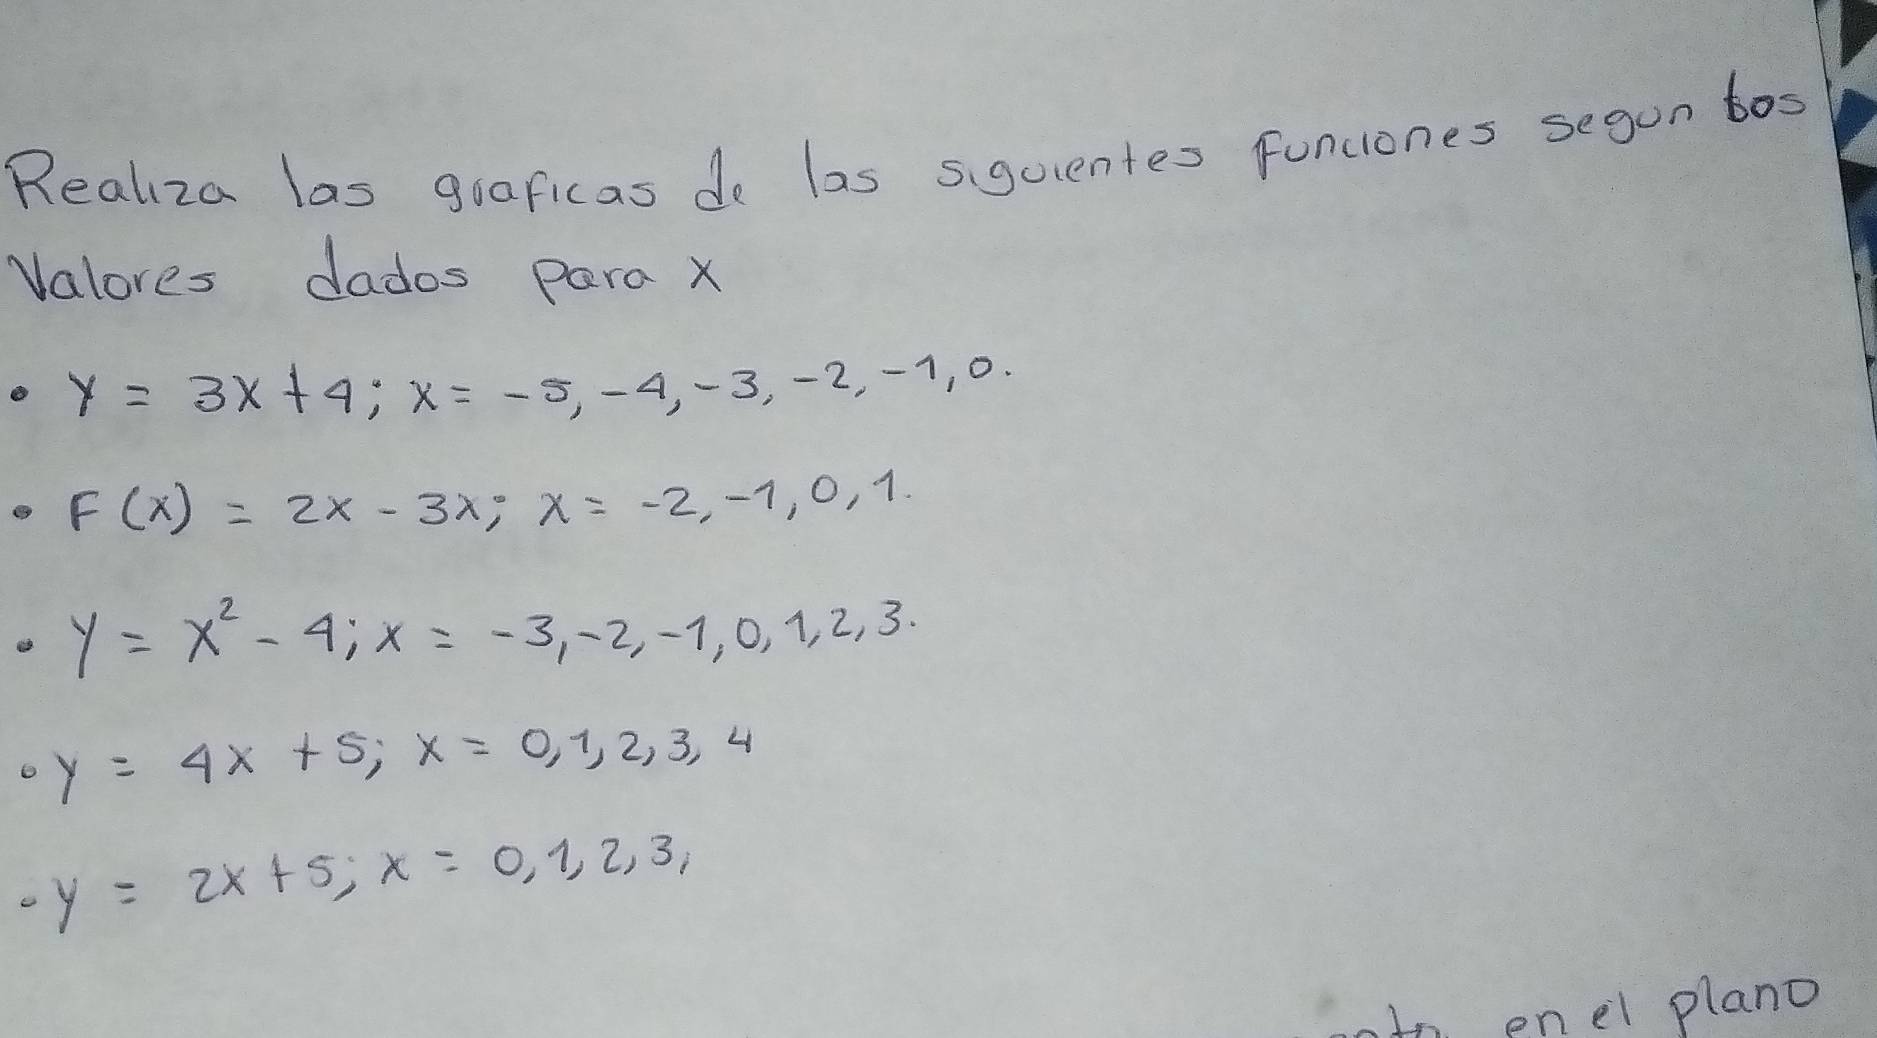 Realiza las graficas de las siguientes funciones segun los
Valores dados para x
• y = 3x + 4; x = -5, -4, -3, -2, -1, 0.
• F(x) = 2x - 3x; x = -2, -1, 0, 1.
• y = x² - 4; x = -3, -2, -1, 0, 1, 2, 3.
• y = 4x + 5; x = 0, 1, 2, 3, 4
• y = 2x + 5; x = 0, 1, 2, 3,
en el plano